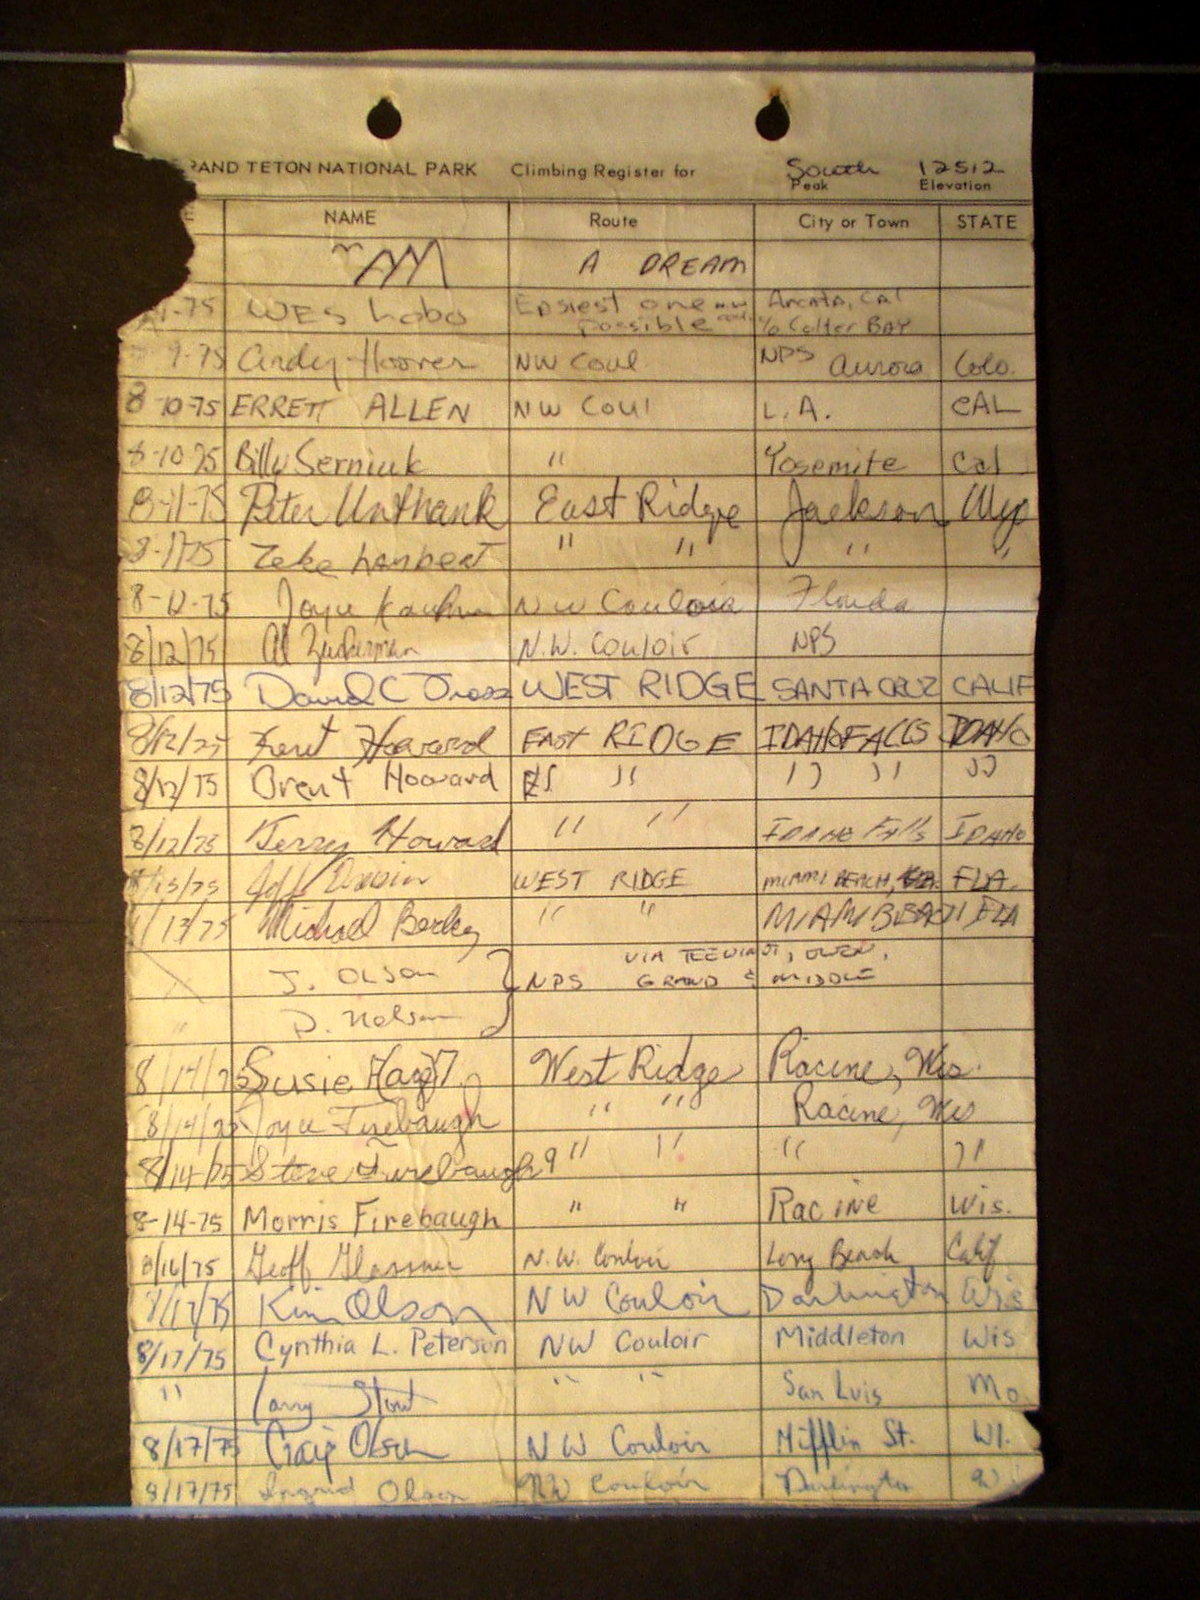 RAND TETON NATIONAL PARK Climbing Register for South 12512
Peak Elevation
E NAME Route City or Town STATE
A DREAM
-75 WES Lobo Easiest one Arcata, Cal
possible c/o Colter BAY
9-75 Andy Hoover NW Coul NPS Aurora Colo.
8-10-75 ERRETT ALLEN NW Coul L.A. CAL
8-10-75 Billy Serniuk " Yosemite Cal
8-11-75 Peter Unthank East Ridge Jackson Wyo
8-11-75 Zeke Lambert " " " "
8-12-75 Joyce NW Couloir Florida
8/12/75 Al Zuckerman N.W. Couloir NPS
8/12/75 David C WEST RIDGE SANTA CRUZ CALIF
8/12/75 Kent Howard EAST RIDGE IDAHO FALLS IDAHO
8/12/75 Brent Howard " " " " "
8/12/75 Terry Howard " " IDAHO Falls IDAHO
/75 Jeff WEST RIDGE MIAMI BEACH, FLA.
/13/75 Michael " " MIAMI BEACH FLA
VIA TEEWINOT, OWEN,
J. OLSON } NPS GRAND & MIDDLE
" D. Nelson
8/14/75 Susie West Ridge Racine, Wis.
8/14/75 Joyce Firebaugh " " Racine, Wis
8/14/75 Steve Firebaugh 9 " " " "
8-14-75 Morris Firebaugh " " Racine Wis.
8/16/75 Geoff N.W. Couloir Long Beach Calif
8/17/75 Kim Olson NW Couloir Darlington Wis
8/17/75 Cynthia L. Peterson NW Couloir Middleton Wis
" Larry Stout " " San Luis Mo
8/17/75 Craig Olson NW Couloir Mifflin St. WI.
8/17/75 Ingrid Olson NW Couloir Darlington